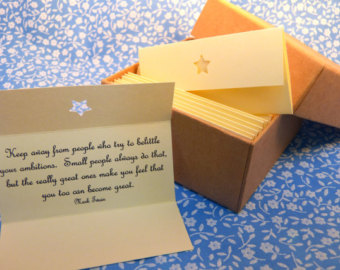 Keep away from people who try to belittle
your ambitions. Small people always do that,
but the really great ones make you feel that
you too can become great.
Mark Twain